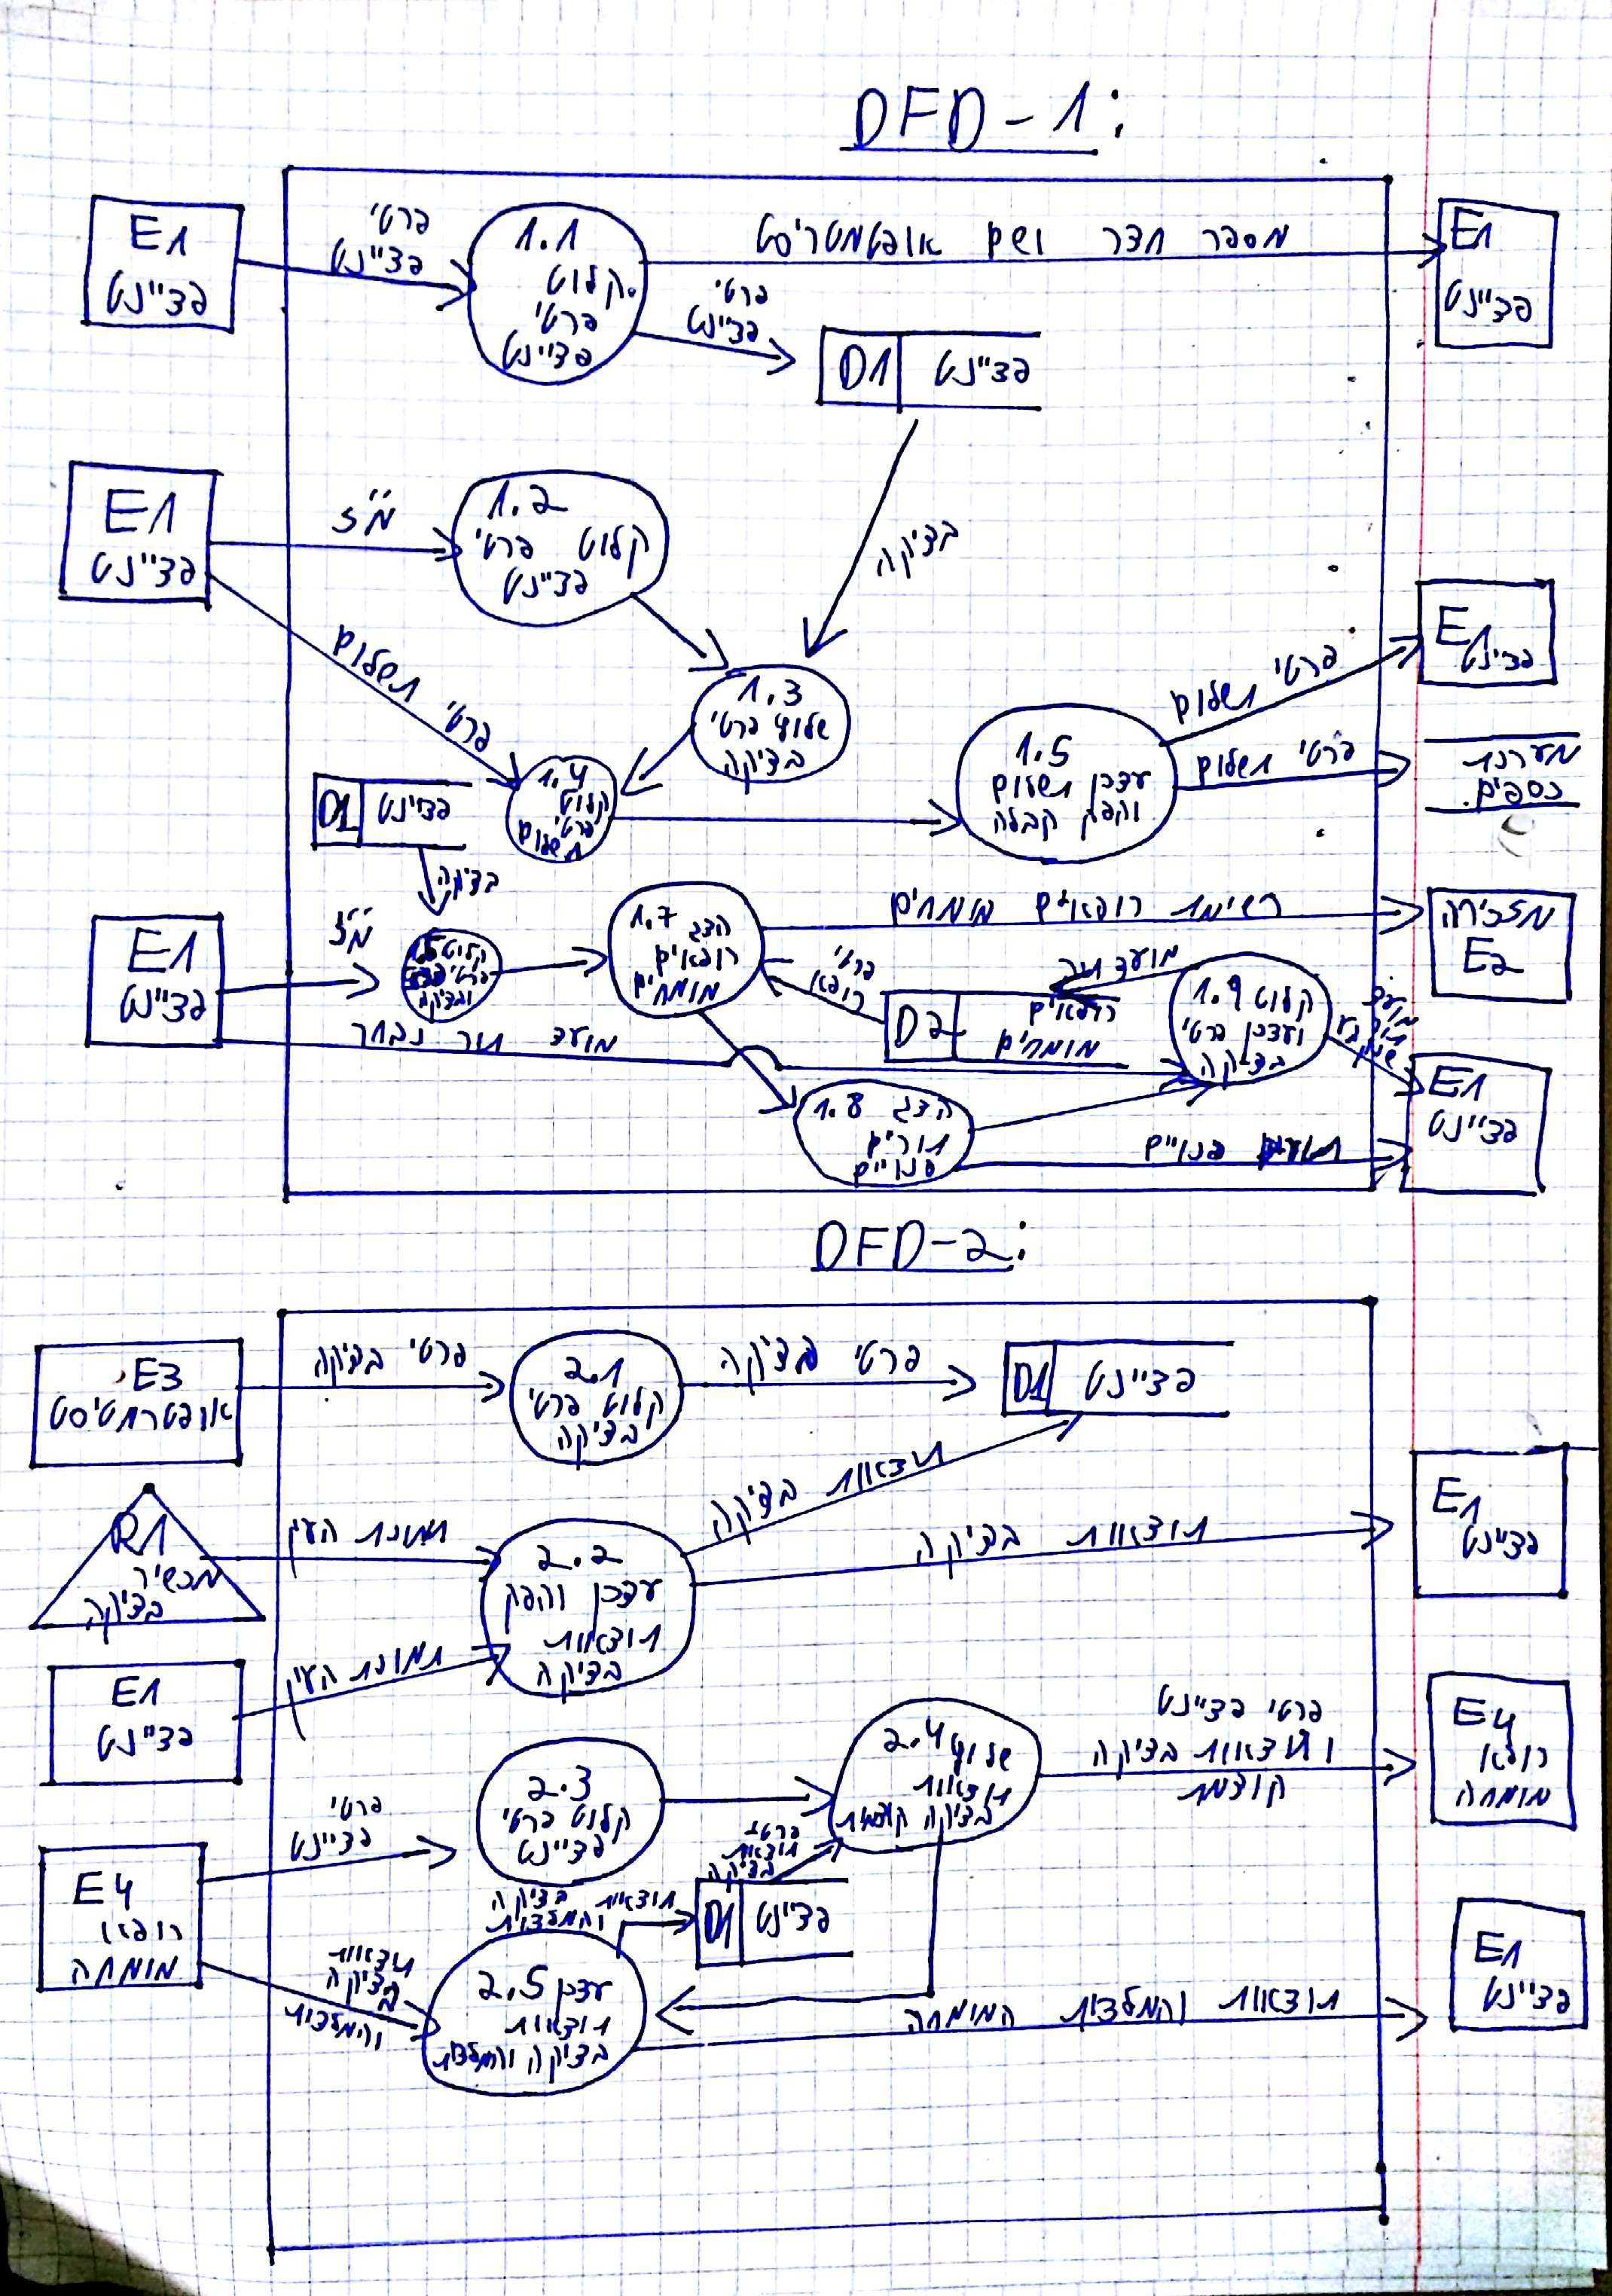 DFD-1:
E1
פציינט
פרטי
פציינט
1.1
קלוט
פרטי
פציינט
מספר חדר ושם אופטמטריסט
E1
פציינט
פרטי
פציינט
D1 פציינט
E1
פציינט
ת"ז
1.2
קלוט פרטי
פציינט
בדיקה
פרטי תשלום
1.3
שלוף פרטי
בדיקה
1.4
קלוט
פרטי
תשלום
1.5
עדכן תשלום
והפק קבלה
פרטי תשלום
E1
פציינט
פרטי תשלום
מערכת
כספים
D1 פציינט
בדיקה
E1
פציינט
ת"ז
קלוט
פרטי
ובדיקה
1.7
הצג
רופאים
מומחים
רשימת רופאים מומחים
מזכירה
E2
פרטי
רופא
מועד תור
D2 רופאים
מומחים
1.9 קלוט
ועדכן פרטי
בדיקה
מועד
תור
שנקבע
מועד תור נבחר
1.8 הצג
תורים
פנויים
פנויים
E1
פציינט
DFD-2:
E3
אופטרמטיסט
פרטי בדיקה
2.1
קלוט פרטי
בדיקה
פרטי בדיקה
D1 פציינט
R1
מכשיר
בדיקה
תמונת העין
2.2
עדכן והפק
תוצאות
בדיקה
תוצאות בדיקה
תוצאות בדיקה
E1
פציינט
E1
פציינט
תמונת העין
2.3
קלוט פרטי
פציינט
2.4 שלוף
תוצאות
בדיקה קודמת
פרטי פציינט
ותוצאות בדיקה
קודמת
E4
רופא
מומחה
E4
רופא
מומחה
פרטי
פציינט
פרטי
תוצאות
בדיקה
D1 פציינט
תוצאות בדיקה
והמלצות
תוצאות
בדיקה
והמלצות
2.5 עדכן
תוצאות
בדיקה והמלצות
תוצאות והמלצות המומחה
E1
פציינט